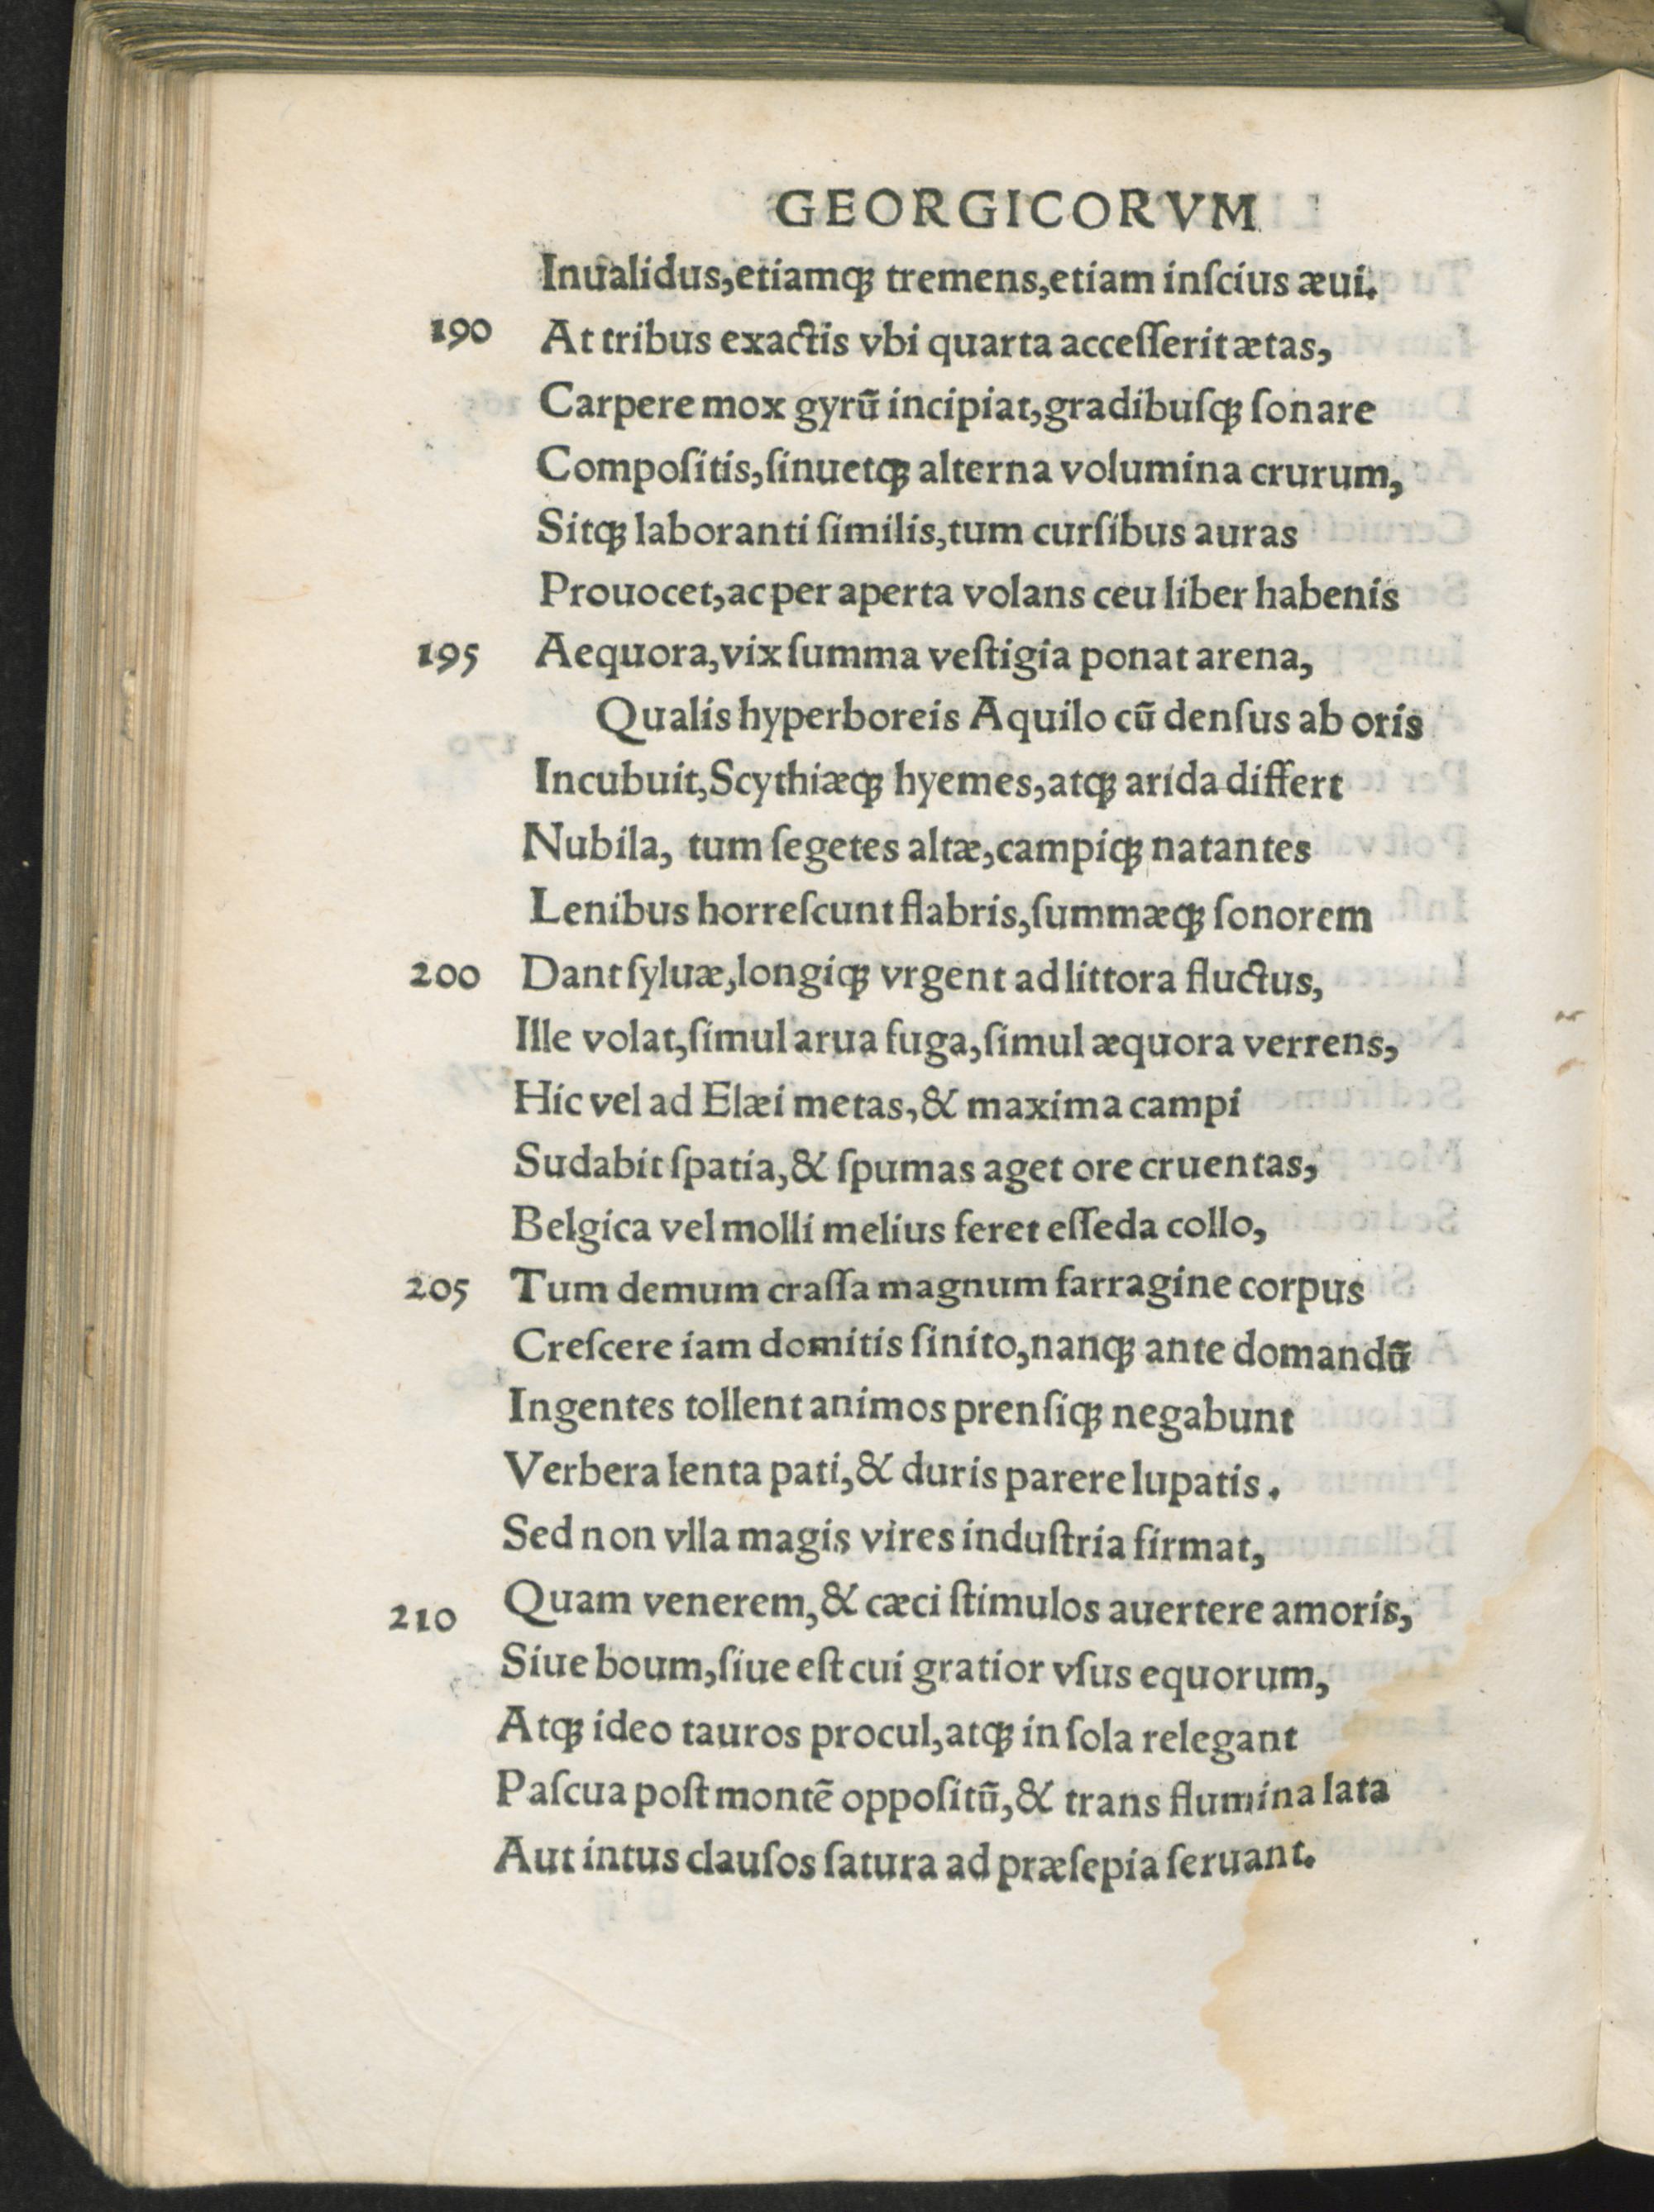 GEORGICORVM
Inualidus,etiamꝗ tremens,etiam inſcius æui.
190 At tribus exactis vbi quarta acceſſerit ætas,
Carpere mox gyrũ incipiat,gradibuſꝗ ſonare
Compoſitis,ſinuetꝗ alterna volumina crurum,
Sitꝗ laboranti ſimilis,tum curſibus auras
Prouocet,ac per aperta volans ceu liber habenis
195 Aequora,vix ſumma veſtigia ponat arena,
Qualis hyperboreis Aquilo cũ denſus ab oris
Incubuit,Scythiæꝗ hyemes,atꝗ arida differt
Nubila, tum ſegetes altæ,campiꝗ natantes
Lenibus horreſcunt flabris,ſummæꝗ ſonorem
200 Dant ſyluæ,longiꝗ vrgent ad littora fluctus,
Ille volat,ſimul arua fuga,ſimul æquora verrens,
Hic vel ad Elæi metas,& maxima campi
Sudabit ſpatia,& ſpumas aget ore cruentas,
Belgica vel molli melius feret eſſeda collo,
205 Tum demum craſſa magnum farragine corpus
Creſcere iam domitis ſinito,nanꝗ ante domandũ
Ingentes tollent animos prenſiꝗ negabunt
Verbera lenta pati,& duris parere lupatis.
Sed non vlla magis vires induſtria firmat,
210 Quam venerem,& cæci ſtimulos auertere amoris,
Siue boum,ſiue eſt cui gratior vſus equorum,
Atꝗ ideo tauros procul,atꝗ in ſola relegant
Paſcua poſt montẽ oppoſitũ,& trans flumina lata
Aut intus clauſos ſatura ad præſepia ſeruant.